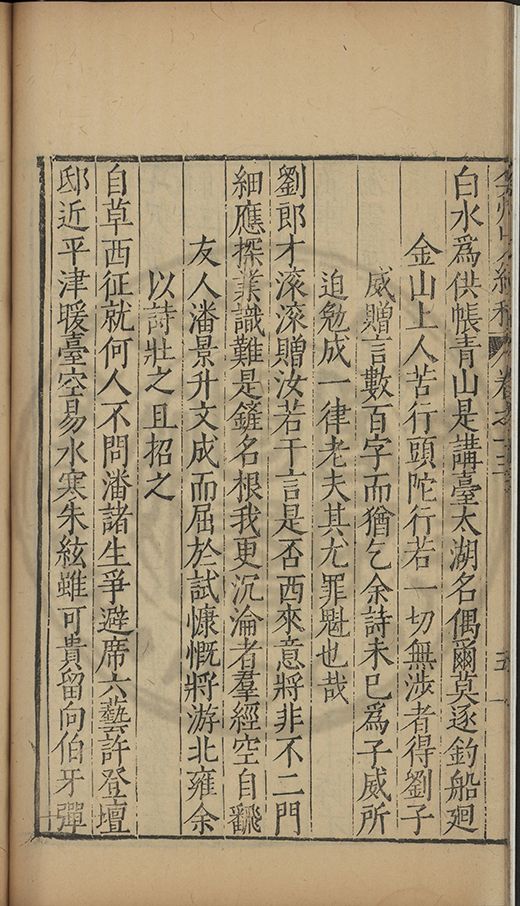 白水爲供帳青山是講臺太湖名偶爾莫逐釣船廻
金山上人苦行頭陀行若一切無涉者得劉子
威贈言數百字而猶乞余詩未巳爲子威所
迫勉成一律老夫其尤罪魁也哉
劉郎才滚滚贈汝若干言是否西來意將非不二門
細應探業識難是鏟名根我更沉淪者羣經空自飜
友人潘景升文成而屈於試慷慨將游北雍余
以詩壯之且招之
自草西征就何人不問潘諸生爭避席六藝許登壇
邸近平津暖臺空易水寒朱絃雖可貴留向伯牙彈